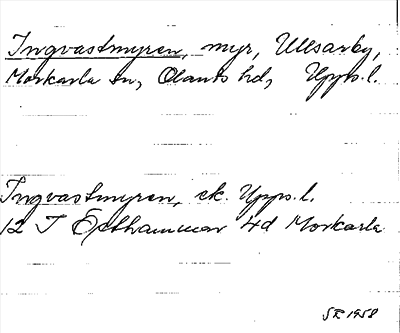 Ingvastmyren, myr, Ullsarby,
Morkarla sn, Olands hd, Upps.l.
Ingvastmyren, ek. Upps.l.
12 I Östhammar 4d Morkarla
SR 1958